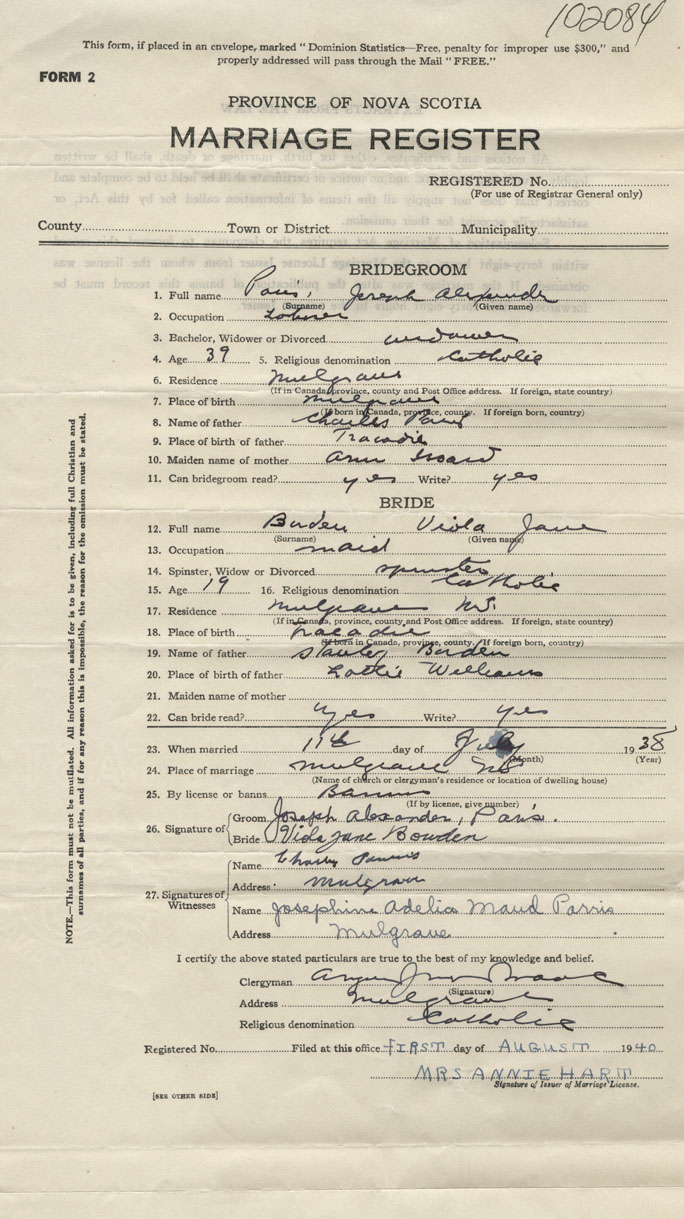 102084
This form, if placed in an envelope, marked "Dominion Statistics—Free, penalty for improper use $300," and
properly addressed will pass through the Mail "FREE."
FORM 2
PROVINCE OF NOVA SCOTIA
MARRIAGE REGISTER
REGISTERED No.
(For use of Registrar General only)
County Town or District Municipality
BRIDEGROOM
1. Full name Paris, Joseph Alexander
(Surname) (Given name)
2. Occupation
3. Bachelor, Widower or Divorced widower
4. Age 39 5. Religious denomination Catholic
6. Residence Mulgrave
(If in Canada, province, county and Post Office address. If foreign, state country)
7. Place of birth Mulgrave
(If born in Canada, province, county. If foreign born, country)
8. Name of father Charles Paris
9. Place of birth of father Tracadie
10. Maiden name of mother Ann
11. Can bridegroom read? yes Write? yes
BRIDE
12. Full name Borden Viola Jane
(Surname) (Given name)
13. Occupation maid
14. Spinster, Widow or Divorced spinster
15. Age 19 16. Religious denomination Catholic
17. Residence Mulgrave N.S.
(If in Canada, province, county and Post Office address. If foreign, state country)
18. Place of birth Tracadie
(If born in Canada, province, county. If foreign born, country)
19. Name of father Stanley Borden
20. Place of birth of father Lottie Williams
21. Maiden name of mother
22. Can bride read? yes Write? yes
23. When married 11th day of July 1938
(Month) (Year)
24. Place of marriage Mulgrave NS
(Name of church or clergyman's residence or location of dwelling house)
25. By license or banns Banns
(If by license, give number)
26. Signature of Groom Joseph Alexander, Paris.
Bride Viola Jane Bowden
27. Signatures of Witnesses
Name Charley Parris
Address Mulgrave
Name Josephine Adelia Maud Parris
Address Mulgrave
I certify the above stated particulars are true to the best of my knowledge and belief.
Clergyman
(Signature)
Address Mulgrave
Religious denomination Catholic
Registered No. Filed at this office FIRST day of AUGUST 1940
MRS ANNIE HART
Signature of Issuer of Marriage License.
[SEE OTHER SIDE]
NOTE.—This form must not be mutilated. All information asked for is to be given, including full Christian and
surnames of all parties, and if for any reason this is impossible, the reason for the omission must be stated.